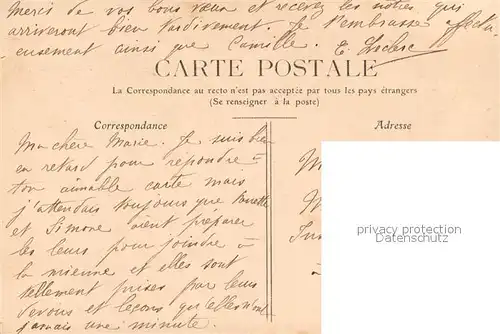 merci de vos bons vœux et recevez les nôtres qui
arriveront bien tardivement. Je t'embrasse affectu-
eusement ainsi que Camille. E. Leclerc
CARTE POSTALE
La Correspondance au recto n'est pas acceptée par tous les pays étrangers
(Se renseigner à la poste)
Correspondance
Adresse
Ma chère Marie. Je suis bien
en retard pour répondre à
ton aimable carte mais
j'attendais toujours que
et Simone aient préparer
les leurs pour joindre à
la mienne et elles sont
tellement prises par leurs
devoirs et leçons qu'elles n'ont
jamais une minute.
privacy protection
www.ansichtskarten-center.de